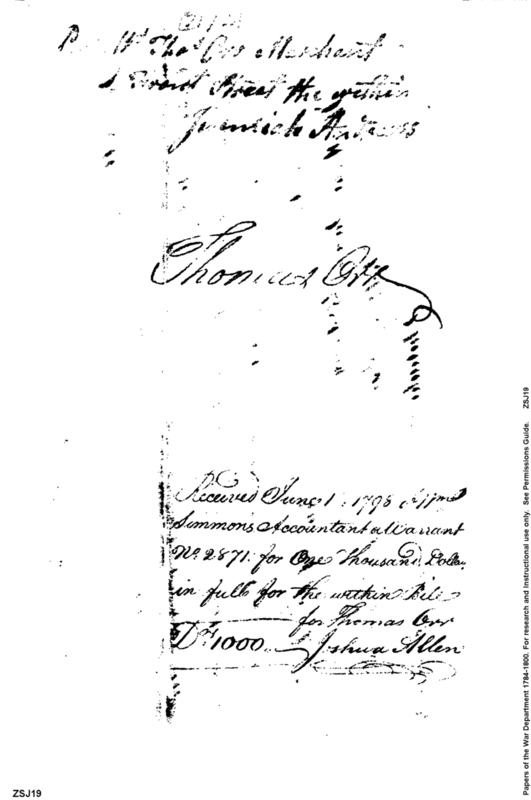 Pay Mr. Thos. Orr Merchant
Front Street the within
Jeremiah Andrews
Thomas Orr
Received June 1. 1798 of Wm
Simmons Accountant a Warrant
No. 2871. for One Thousand Dollars
in full for the within Bill
for Thomas Orr
Ds. 1000. Joshua Allen
ZSJ19
Papers of the War Department 1784-1800. For research and instructional use only. See Permissions Guide. ZSJ19